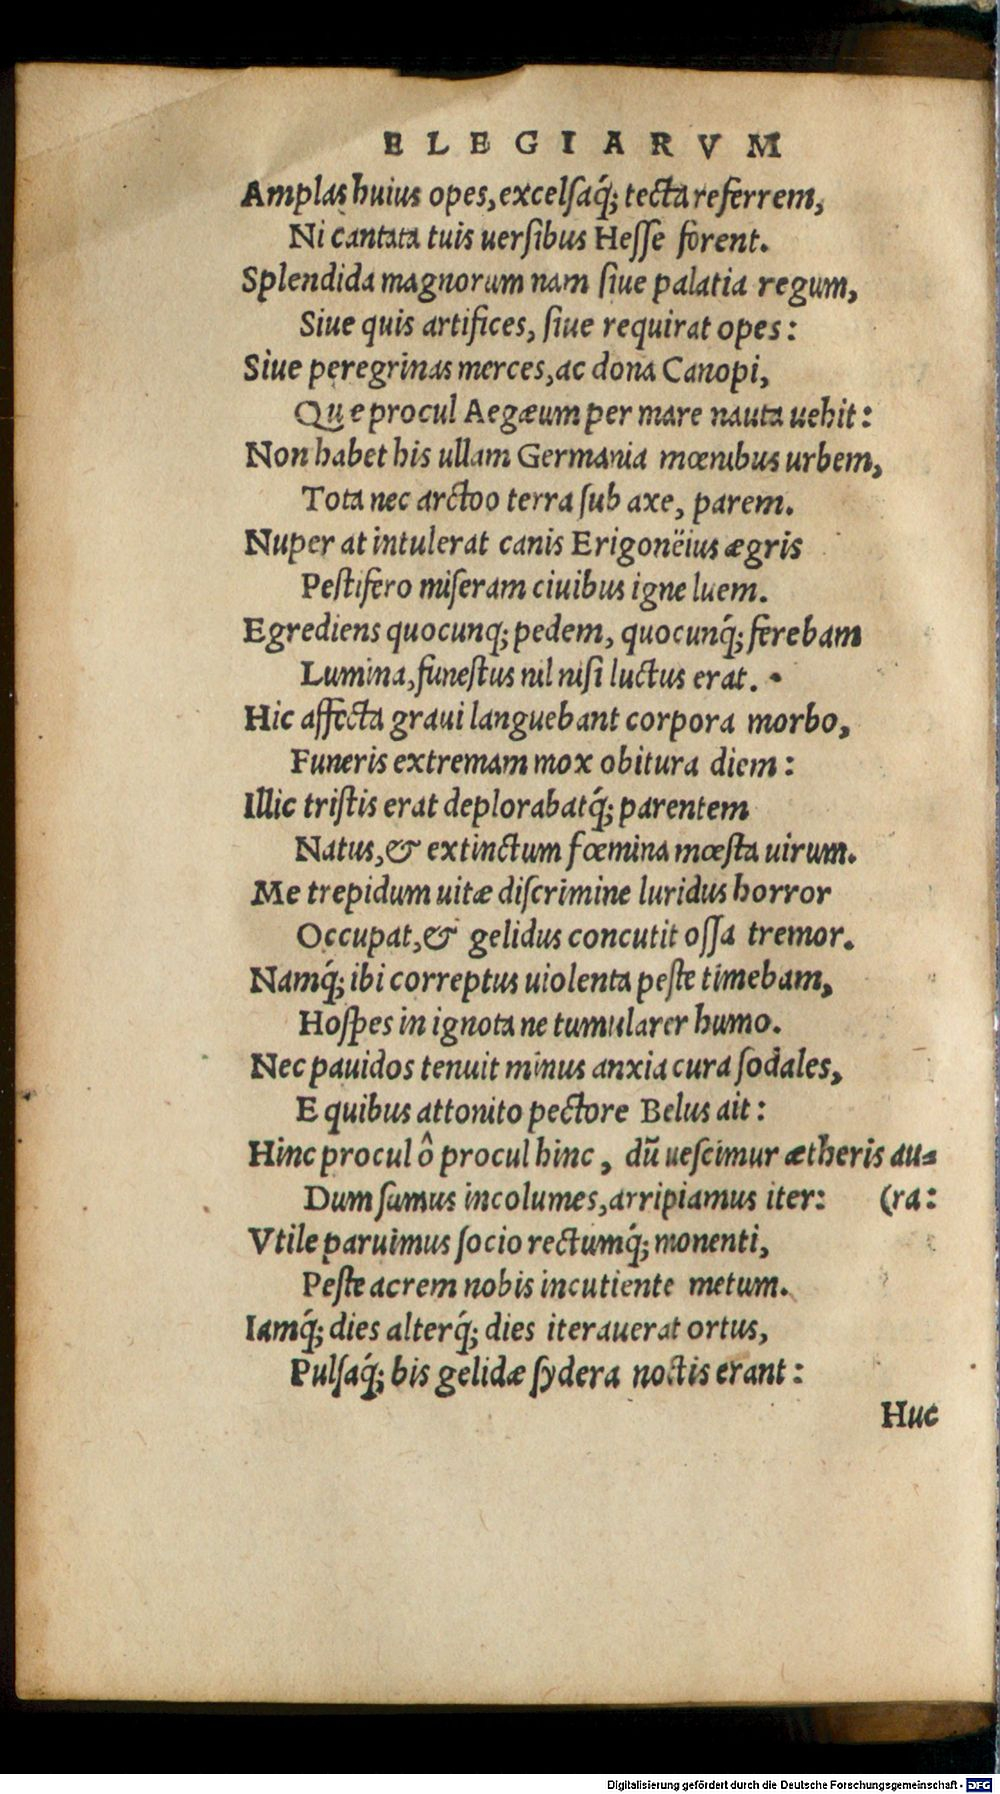 ELEGIARVM
Amplas huius opes, excelſaq́; tecta referrem,
Ni cantata tuis uerſibus Heſſe forent.
Splendida magnorum nam ſiue palatia regum,
Siue quis artifices, ſiue requirat opes:
Siue peregrinas merces, ac dona Canopi,
Quę procul Aegæum per mare nauta uehit:
Non habet his ullam Germania mœnibus urbem,
Tota nec arctoo terra ſub axe, parem.
Nuper at intulerat canis Erigonëius ægris
Peſtifero miſeram ciuibus igne luem.
Egrediens quocunq; pedem, quocunq́; ferebam
Lumina, funeſtus nil niſi luctus erat.
Hic affecta graui languebant corpora morbo,
Funeris extremam mox obitura diem:
Illic triſtis erat deplorabatq́; parentem
Natus, & extinctum fœmina mœſta uirum.
Me trepidum uitæ diſcrimine luridus horror
Occupat, & gelidus concutit oſſa tremor.
Namq́; ibi correptus uiolenta peſte timebam,
Hoſpes in ignota ne tumularer humo.
Nec pauidos tenuit minus anxia cura ſodales,
E quibus attonito pectore Belus ait:
Hinc procul ô procul hinc, dū ueſcimur ætheris au-
Dum ſumus incolumes, arripiamus iter: (ra:
Vtile paruimus ſocio rectumq́; monenti,
Peſte acrem nobis incutiente metum.
Iamq́; dies alterq́; dies iterauerat ortus,
Pulſaq́; bis gelidæ ſydera noctis erant:
Huc
Digitalisierung gefördert durch die Deutsche Forschungsgemeinschaft - DFG